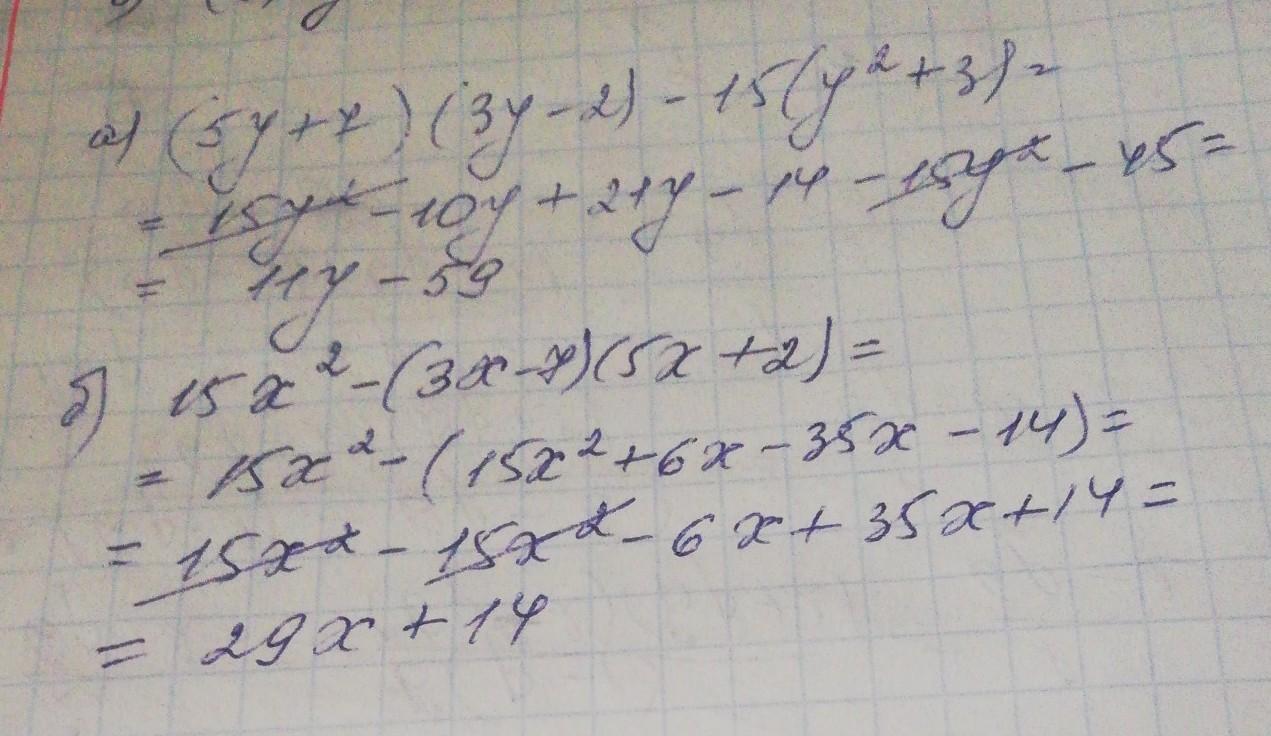 а) (5y+7)(3y-2)-15(y²+3)=
= 15y²-10y+21y-14-15y²-45=
= 11y-59
б) 15x²-(3x-7)(5x+2)=
= 15x²-(15x²+6x-35x-14)=
= 15x²-15x²-6x+35x+14=
= 29x+14